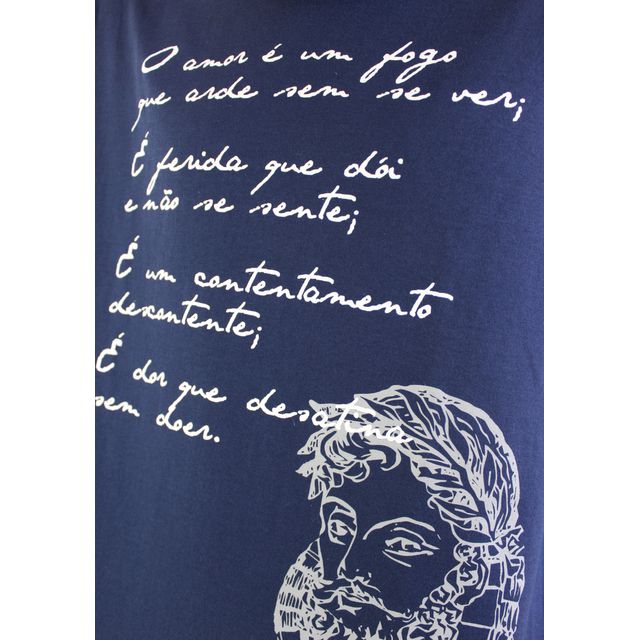 O amor é um fogo
que arde sem se ver;
É ferida que dói
e não se sente;
É um contentamento
descontente;
É dor que desatina
sem doer.